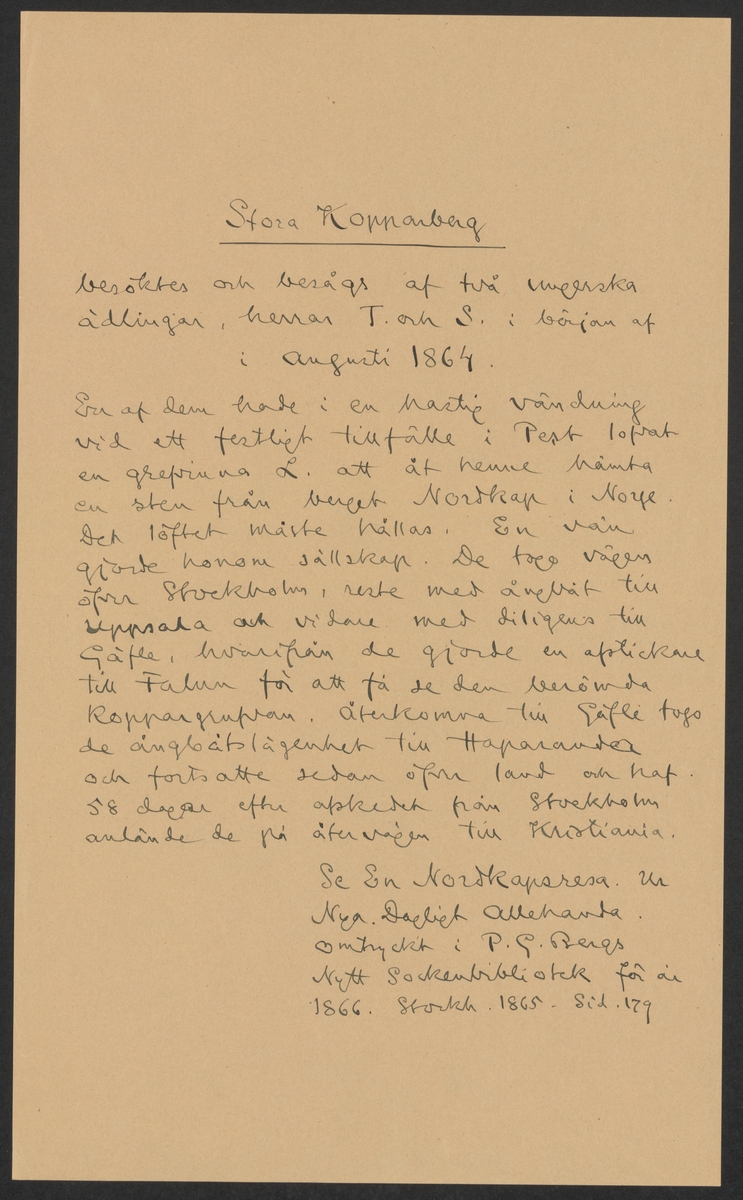 Stora Kopparberg
besöktes och besågs af två ungerska
ädlingar, herrar T. och S. i början af
i augusti 1864.
En af dem hade i en hastig vändning
vid ett festligt tillfälle i Pest lofvat
en grefvinna L. att åt henne hämta
en sten från berget Nordkap i Norge.
Det löftet måste hållas. En vän
gjorde honom sällskap. De togo vägen
öfver Stockholm, reste med ångbåt till
Uppsala och vidare med diligens till
Gäfle, hvarifrån de gjorde en afstickare
till Falun för att få se den berömda
koppargrufvan. Återkomna till Gäfle togo
de ångbåtslägenhet till Haparanda
och fortsatte sedan öfver land och haf.
58 dagar efter afskedet från Stockholm
anlände de på återvägen till Kristiania.
Se En Nordkapsresa. Ur
Nya Dagligt Allehanda.
omtryckt i P. G. Bergs
Nytt Sockenbibliotek för år
1866. Stockh. 1865 - Sid. 179